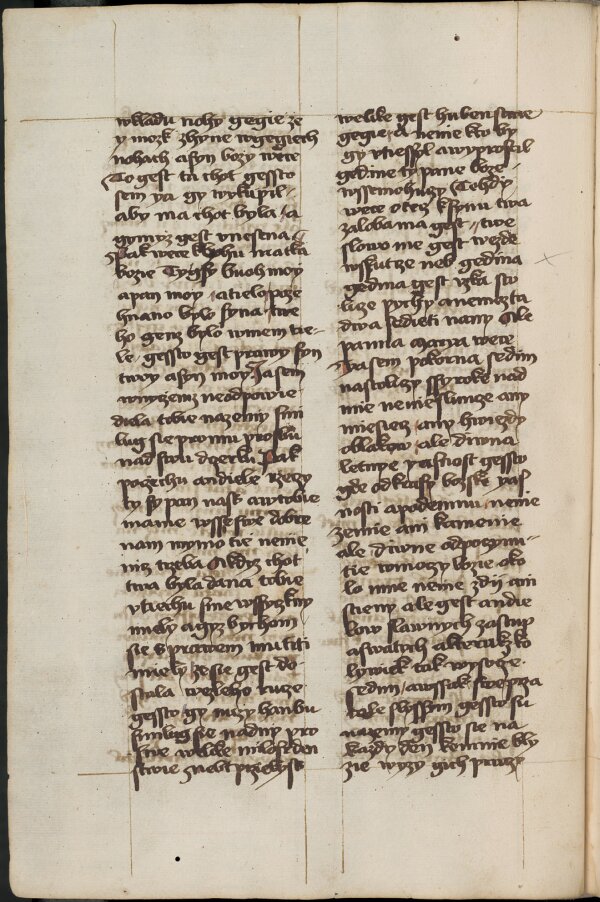 wkladu nohy gegie ze
y mozk zhyne wgegiech
nohach a syn bozy wece
To gest ta chot gessto
sem ya gy wykupil
aby ma chot byla a
gymyz gest vnesena
Pak wece khohu matka
bozie Tygsy buoh moy
a pan moy a tielo poze
hnano bylo syna twe
ho genz bylo wmem tie-
le gessto gest prawy syn
twoy a syn moy Ja sem
wnyczemz neodpowie
diela tobie nazemy smi
lug sie pro mu prosbu
nad swu dczerku Pak
poczechu andiele rzeczy
ty sy pan nass a wtobie
mame wssessce dobre
nam mymo tie nenie
nicz trzeba A kdyz chot
twa byla dana tobie
vtiechu sme wssyczkny
miely a gyz bychom
sie sprawem mutiti
miely ze sie gest do-
stala wezleho ruze
gessto gy mezy hanbu
smilug sie nad ny pro
swe welike milosrden
stwie znebt przielyss
welike gest hubenstwie
gegie a nenie kto by
gy vtiessyl a wyprosil
gedine ty pane boze
wssemohuczy Tehdy
wece otecz k synu twa
zaloba ma gest twe
slowo me gest wezde
wskutcze neb gedina
gedina gest uzka sto
licze pychy a nemozta
dwa sedieti na ny Ale
panna maria wece
Ya sem pokorna sedim
nastoliczy ssyroke nad
mie nenie slunce any
miesiecz any hwiezdy
oblakow ale diwna
letnye yasnost gessto
gde od krasy bozske yas
nosti a podemnu nenie
zemie ani kamenie
ale diwne odpoczinu-
tie wmoczy bozie oko
lo mne nenie zdij ani
stieny ale gest andie
low slawnych zastup
a swatych a kteruzko
lywiek tak wysoce
sedim awssak swe prza
tele slyssym gessto su
nazemy gessto sie na
kazdy den komnie bly
zie wyzy gich praczy